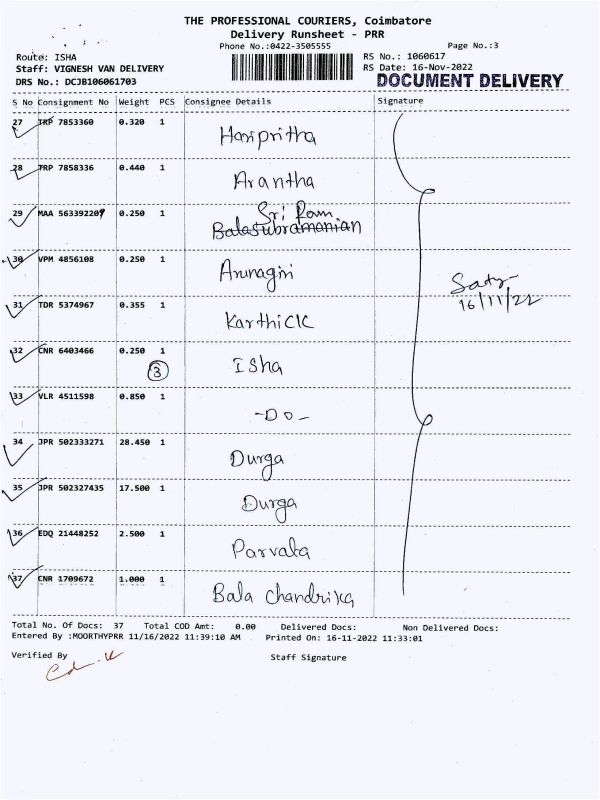 THE PROFESSIONAL COURIERS, Coimbatore
Delivery Runsheet - PRR
Phone No.:0422-3505555 Page No.:3
Route: ISHA RS No.: 1060617
Staff: VIGNESH VAN DELIVERY RS Date: 16-Nov-2022
DRS No.: DCJB106061703 DOCUMENT DELIVERY
S No Consignment No Weight PCS Consignee Details Signature
27 TRP 7853360 0.320 1 Haripritha
28 TRP 7858336 0.440 1 Arantha
29 MAA 563392209 0.250 1 Sri Ram
Balasubramanian
30 VPM 4856108 0.250 1 Arunagiri
31 TDR 5374967 0.355 1 Karthick
16/11/22
32 CNR 6403466 0.250 1 Isha
3
33 VLR 4511598 0.850 1 -Do-
34 JPR 502333271 28.450 1 Durga
35 JPR 502327435 17.500 1 Durga
36 EDQ 21448252 2.500 1 Parvata
37 CNR 1709672 1.000 1 Bala Chandrika
Total No. Of Docs: 37 Total COD Amt: 0.00 Delivered Docs: Non Delivered Docs:
Entered By :MOORTHYPRR 11/16/2022 11:39:10 AM Printed On: 16-11-2022 11:33:01
Verified By Staff Signature